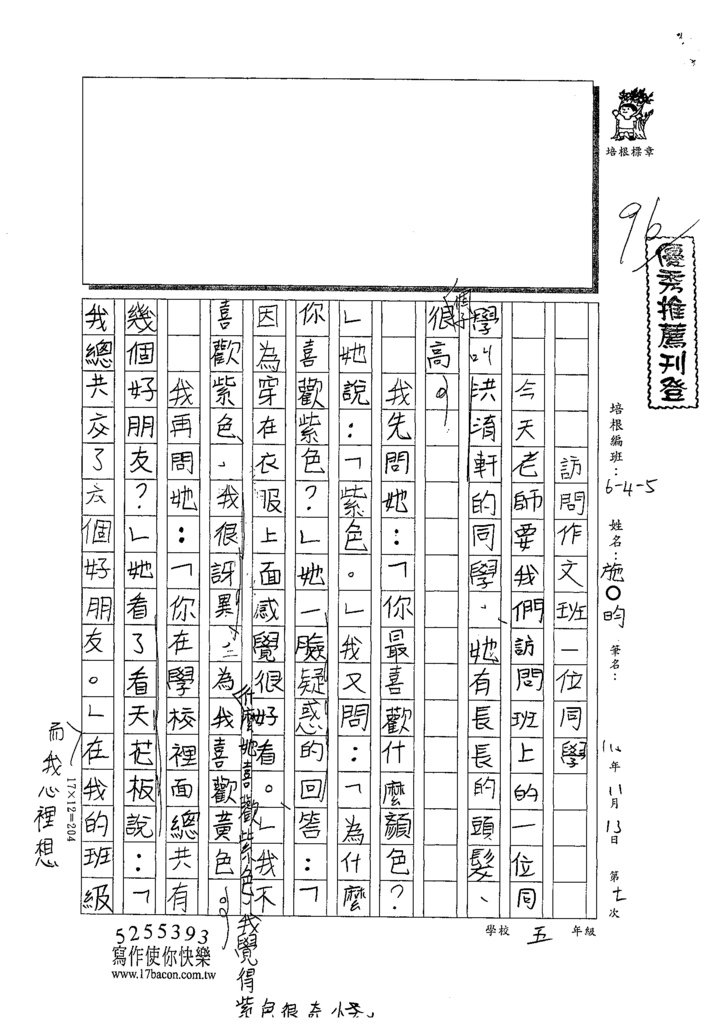 培根標章
96
優秀推薦刊登
培根編班：6-4-5 姓名：施○昀 筆名：
年11月13日 第七次
學校 五 年級
訪問作文班一位同學
今天老師要我們訪問班上的一位同
學叫洪淯軒的同學、她有長長的頭髮、
個子
很高。
我先問她：「你最喜歡什麼顏色？
」她說：「紫色。」我又問：「為什麼
你喜歡紫色？」她一臉疑惑的回答：「
因為穿在衣服上面感覺很好看。」我不
喜歡紫色、我很訝異、為我喜歡黃色。
什麼她喜歡紫色，我覺得
紫色很奇怪」
我再問她：「你在學校裡面總共有
幾個好朋友？」她看了看天花板說：「
我總共交了六個好朋友。」在我的班級
而我心裡想
17×12=204
5255393
寫作使你快樂
www.17bacon.com.tw